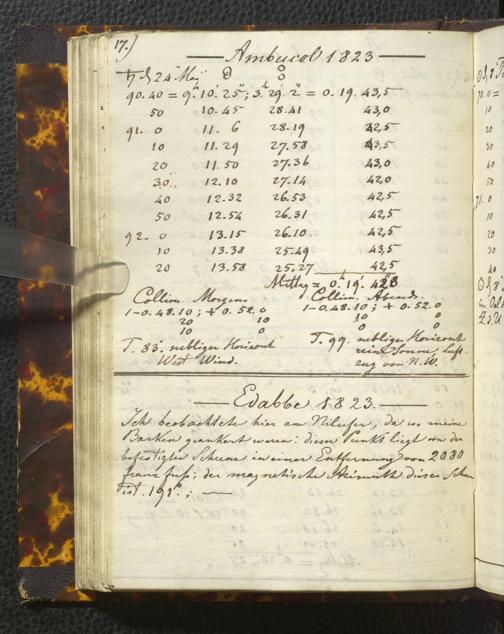 17.)
Ambucol 1823
♄ d 24' May
90.40 = 9.h 10.' 25"; 3.h 29.' 2" = 0. 19. 43,5
50 10. 45 28. 41 43,0
91. 0 11. 6 28. 19 42,5
10 11. 29 27. 58 43,5
20 11. 50 27. 36 43,0
30. 12. 10 27. 14 42,0
40 12. 32 26. 53 42,5
50 12. 54 26. 31 42,5
92. 0 13. 15 26. 10 42,5
10 13. 38 25. 49 43,5
20 13. 58 25. 27 42,5
Mittag = 0.h 19.' 42,8
Collim. Morgens Collim. Abends.
1-0. 48. 10; + 0. 52. 0 1-0. 48. 10; + 0. 52. 0
20 10 10 0
10 0 0 0
T. 83. nebliger Horizont T. 99. nebliger Horizont
West Wind. reine Sonne; Luft
zug von N. W.
Edabbe 1823.
Ich beobachtete hier am Nilufer, da wo meine
Barken geankert waren: dieser Punkt liegt von der
befestigten Scheune in einer Entfernung von 2030
franz. fuß; der magnetische Azimuth dieser Scheu
ist 191°;